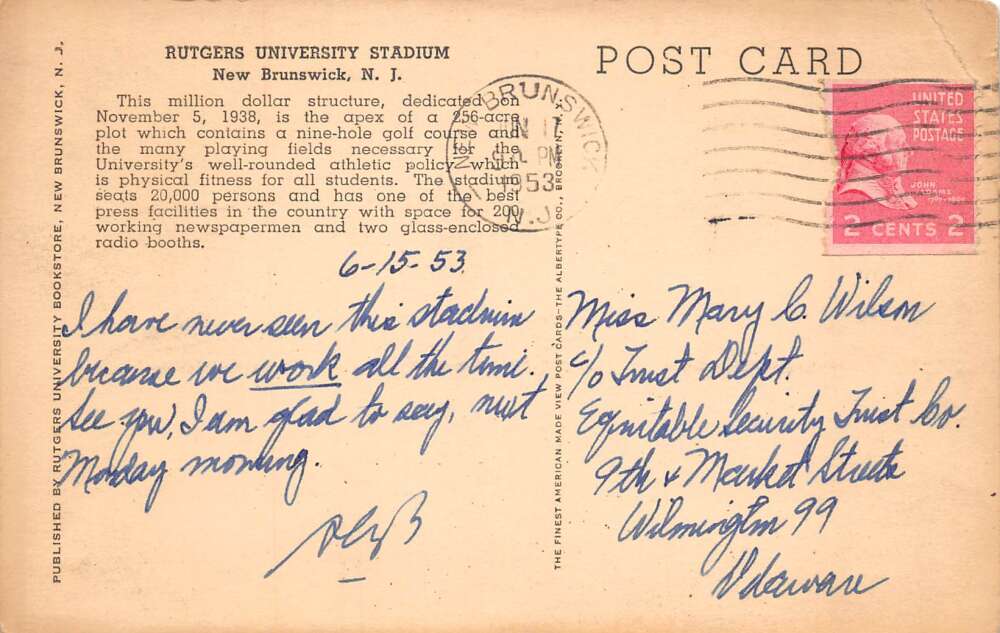 RUTGERS UNIVERSITY STADIUM
New Brunswick, N. J.
This million dollar structure, dedicated on
November 5, 1938, is the apex of a 256-acre
plot which contains a nine-hole golf course and
the many playing fields necessary for the
University's well-rounded athletic policy which
is physical fitness for all students. The stadium
seats 20,000 persons and has one of the best
press facilities in the country with space for 200
working newspapermen and two glass-enclosed
radio booths.
6-15-53
I have never seen this stadium
because we work all the time.
See you, I am glad to say, next
Monday morning.
PUBLISHED BY RUTGERS UNIVERSITY BOOKSTORE, NEW BRUNSWICK, N. J.
THE FINEST AMERICAN MADE VIEW POST CARDS—THE ALBERTYPE CO., BROOKLYN
POST CARD
BRUNSWICK
PM
1953
N.J.
UNITED
STATES
POSTAGE
JOHN
ADAMS
2 CENTS 2
Miss Mary C. Wilson
c/o Trust Dept.
Equitable Security Trust Co.
9th & Market Streets
Wilmington 99
Delaware